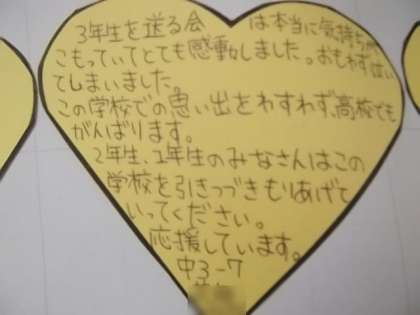 3年生を送る会 は本当に気持ちが
こもっていてとても感動しました。おもわず泣い
てしまいました。
この学校での思い出をわすわず、高校でも
がんばります。
2年生、1年生のみなさんはこの
学校を引きつづきもりあげて
いってください。
応援しています。
中3-7